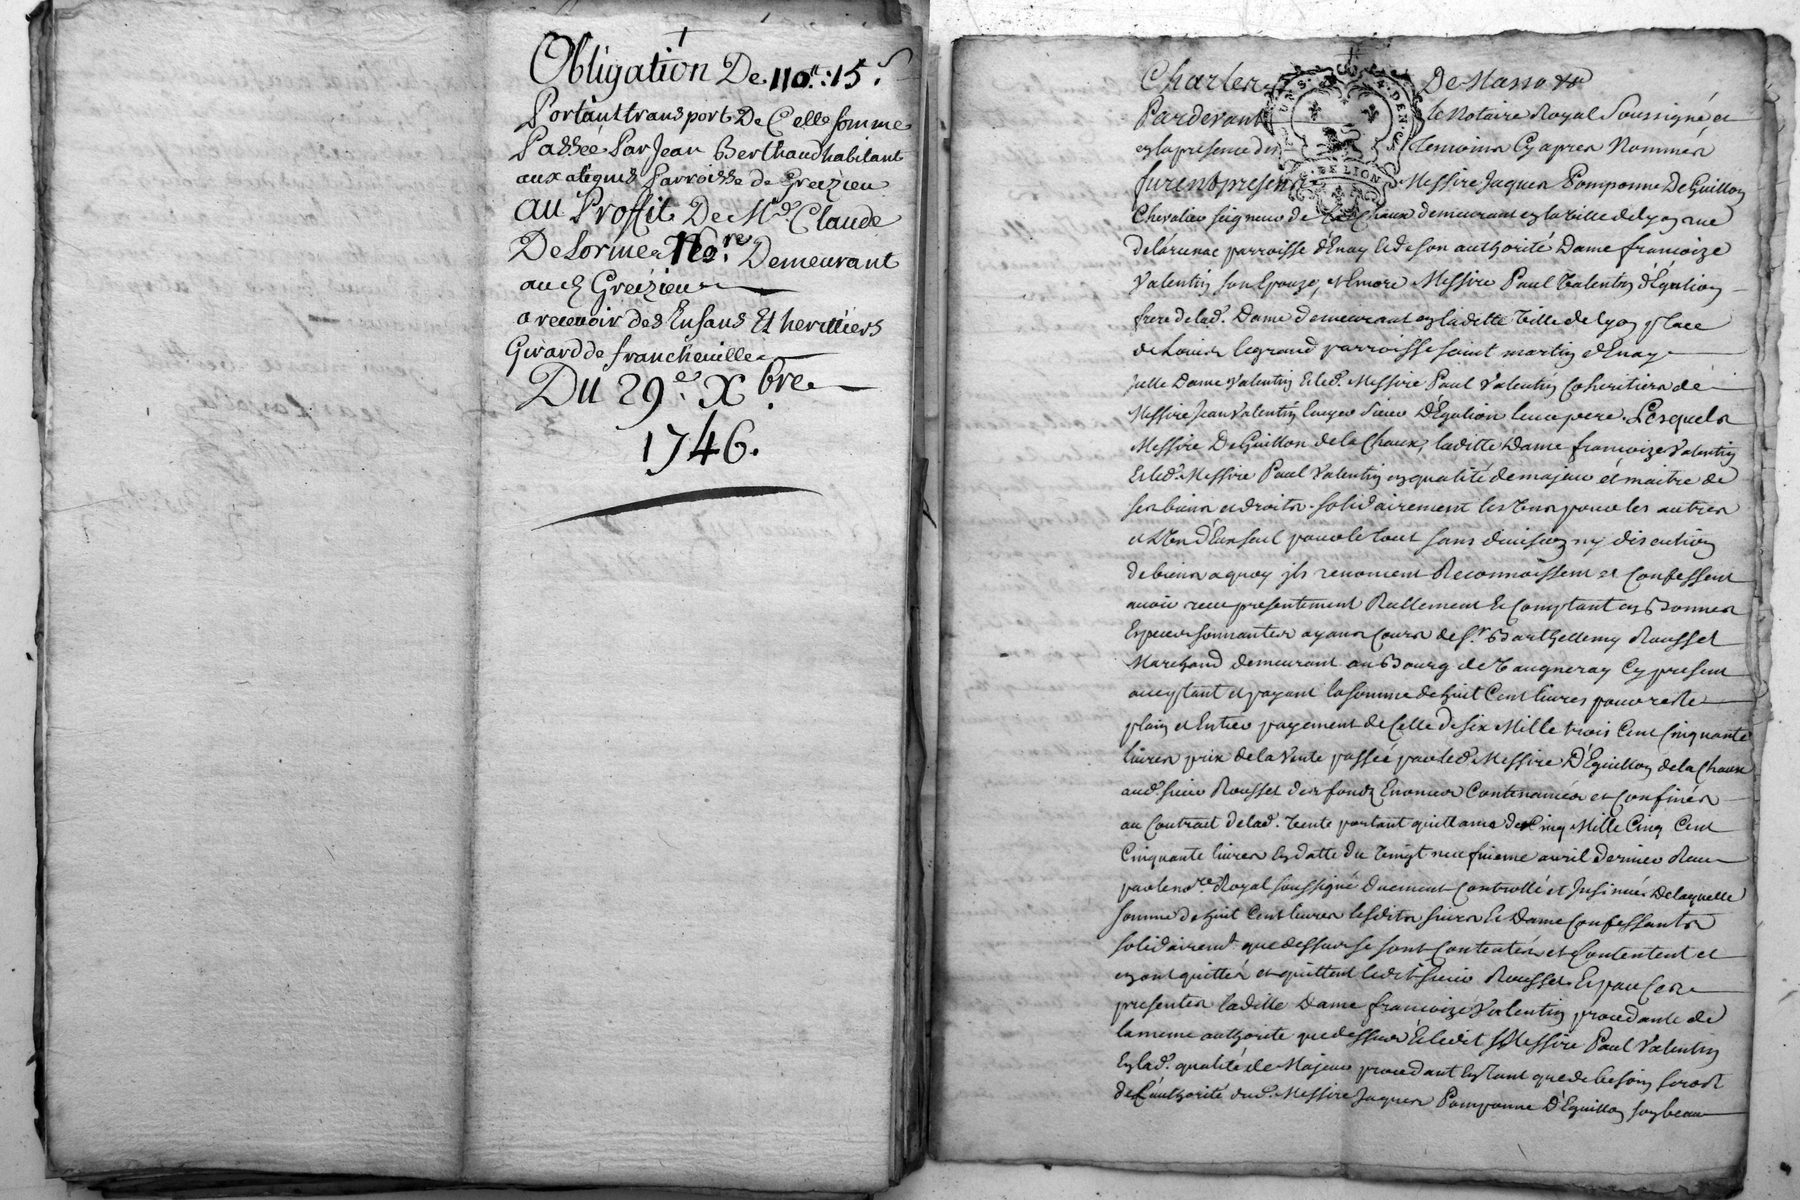 Obligation De 110.ᵗᵗ:15.ˢ
Portant transport De Celle somme
Passée Par Jean Berthaud habitant
aux Parroisse de Greizieu
au Proffit De M.ᵈ Claude
De Lorme No.ʳᵉ Demeurant
aud Greizieu
a recevoir des Enfans Et heritiers
Girard de francheville
Du 29.ᵉ Xbre
1746.
Charles De Masso &ᵃ
Pardevant le Notaire Royal Soussigné et
en la presence des temoins Cy apres Nommés
furent presens Messire Jaques Pomponne De Guillon
Chevalier seigneur de la Chaux demeurant en la ville de lyon rue
de parroisse d'Enay & de son authorité Dame françoize
Valentin son Epouze, et Encore Messire Paul Valentin d'Eguilion
frere de lad.ᵉ Dame demeurant en laditte Ville de lyon place
de Louis le grand parroisse saint martin d'Enay
Dame Valentin & led.ᵗ Messire Paul Valentin Coheritiers de
Messire Jean Valentin Sieur d'Egulion leur pere. Lesquels
Messire De Guillon de la Chaux, laditte Dame françoize Valentin
& led.ᵗ Messire Paul Valentin en qualité de majeur et maitre de
ses biens et droits solidairement les Uns pour les autres
et L'Un d'Eux seul pour le tout sans division ny discution
de biens a quoy ils renoncent Reconnoissent et Confessent
avoir receu presentement Reellement & Comptant en Bonnes
Especes sonnantes ayans Cours de S.ʳ Barthellemy Rousset
Marchand demeurant au Bourg de Vaugneray Cy present
acceptant et payant la somme de huit Cent livres pour reste
plain et Entier payement de Celle de six Mille trois Cent Cinquante
livres prix de la Vente passée par led.ᵗ Messire D'Eguillon de la Chaux
aud.ᵗ sieur Rousset des fonds Enoncés Contenancés et Confinés
au Contrait de lad.ᵉ Vente portant quittance de Cinq Mille Cinq Cent
Cinquante livres En datte du Vingt neufvieme avril dernier Receu
par le no.ʳᵉ Royal soussigné duement Controllé et Insinué De laquelle
somme de huit Cent livres lesdits sieurs & Dame Confessants
solidairem.ᵗ que dessus se sont Contentés et Contentent et
en ont quitté et quittent ledit sieur Rousset & par Ces
presentes laditte Dame françoize Valentin procedante de
la meme authorité que dessus & ledit Messire Paul Valentin
En lad.ᵉ qualité de Majeur procedant En tant que de besoin seroit
de l'authorité dud.ᵗ Messire Jaques Pomponne D'Eguillon son beau